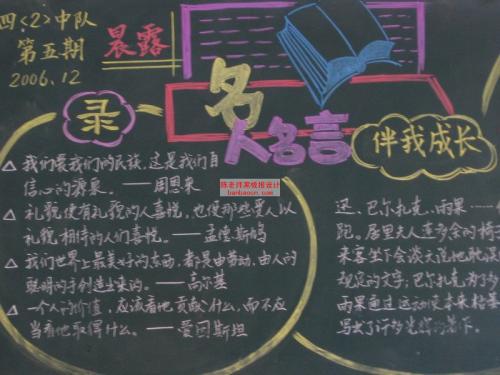 四〈2〉中队
第五期
2006.12
晨露
名人名言
录
伴我成长
陈老师黑板报设计
banbaocn.com
△ 我们爱我们的民族，这是我们自
信心的源泉。——周恩来
△ 礼貌使有礼貌的人喜悦，也使那些受人以
礼貌相待的人们喜悦。——孟德斯鸠
△ 我们世界上最美好的东西，都是由劳动，由人的
聪明的手创造出来的。——高尔基
△ 一个人的价值，应该看他贡献什么，而不应
当看他取得什么。——爱因斯坦
还、巴尔扎克、雨果……
跑。居里夫人连多余的椅
来客坐下会谈天说地耽误
规定的文字，巴尔扎克为了
雨果通过运动使未来
写出了许多光辉的著作。